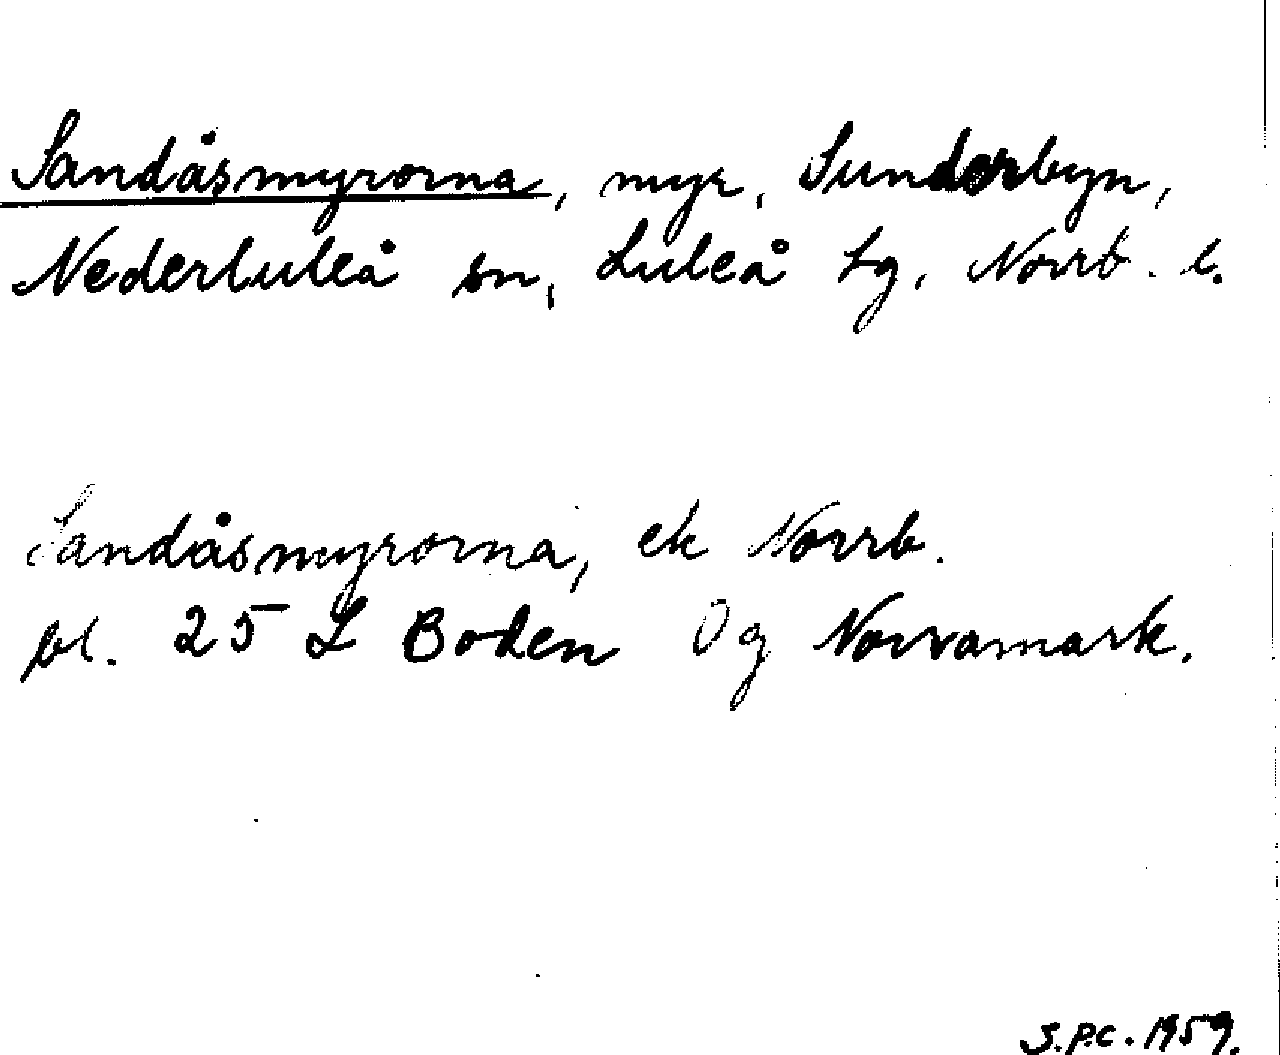 Sandåsmyrorna, myr, Sunderbyn,
Nederluleå sn, Luleå tg, Norrb. l.
Sandåsmyrorna, ek Norrb.
bl. 25 L Boden Og Norramark.
S.P.C. 1959.